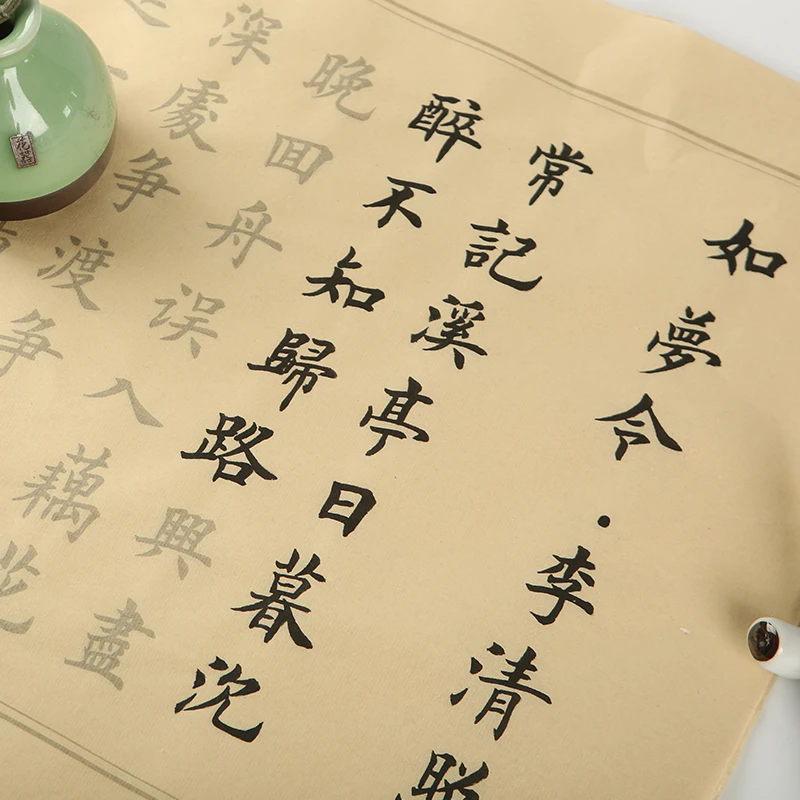 如夢令·李清照
常記溪亭日暮沈
醉不知歸路興盡
晚回舟误入藕花
深處争渡争